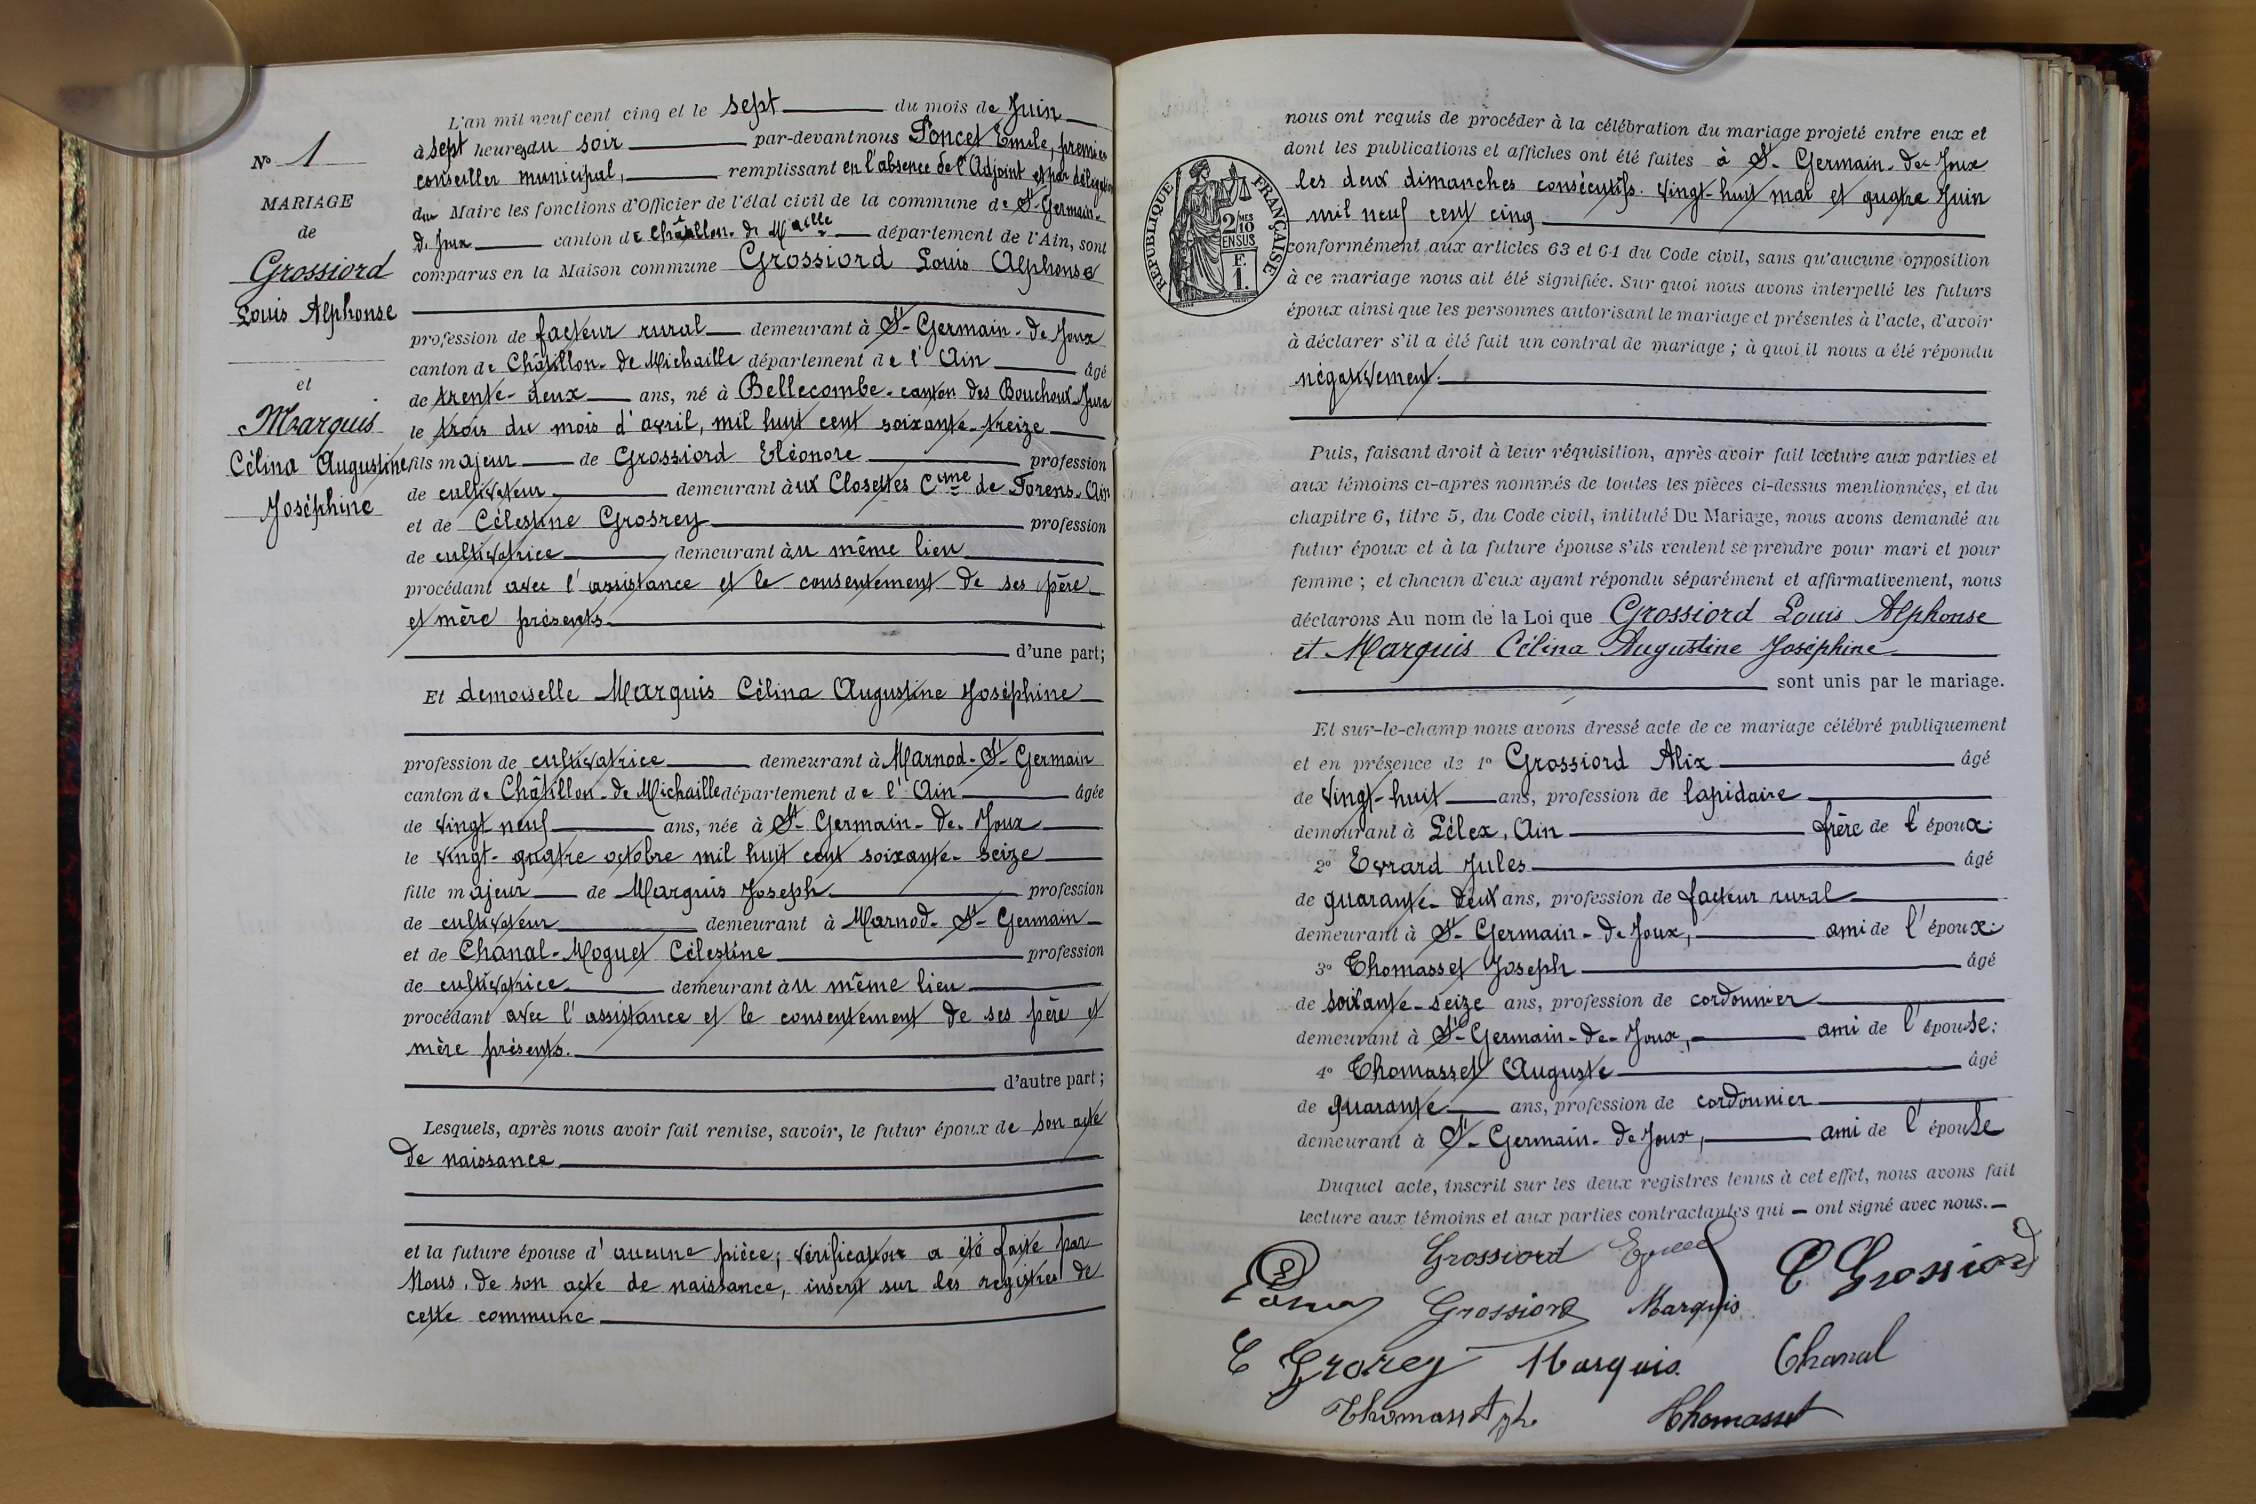 N° 1
MARIAGE
de
Grossiord
Louis Alphonse
et
Marquis
Célina Augustine
Joséphine
L'an mil neuf cent cinq et le sept du mois de Juin
à sept heures du soir par-devant nous Poncet Emile, premier
conseiller municipal, remplissant en l'absence de l'Adjoint et par délégation
du Maire les fonctions d'Officier de l'état civil de la commune de St-Germain-
de Joux canton de Châtillon-de Maille département de l'Ain, sont
comparus en la Maison commune Grossiord Louis Alphonse
profession de facteur rural demeurant à St-Germain-de Joux
canton de Châtillon-de Michaille département de l'Ain âgé
de trente-deux ans, né à Bellecombe-canton des Bouchoux-Jura
le trois du mois d'avril, mil huit cent soixante-treize
fils majeur de Grossiord Eléonore profession
de cultivateur demeurant aux Closettes Cme de Forens-Ain
et de Célestine Grosrey profession
de cultivatrice demeurant au même lieu
procédant avec l'assistance et le consentement de ses père
et mère présents
d'une part;
Et demoiselle Marquis Célina Augustine Joséphine
profession de cultivatrice demeurant à Marnod-St-Germain
canton de Châtillon-de Michaille département de l'Ain âgée
de vingt neuf ans, née à St-Germain-de-Joux
le vingt-quatre octobre mil huit cent soixante-seize
fille majeur de Marquis Joseph profession
de cultivateur demeurant à Marnod-St-Germain
et de Chanal-Moguet Célestine profession
de cultivatrice demeurant au même lieu
procédant avec l'assistance et le consentement de ses père et
mère présents.
d'autre part;
Lesquels, après nous avoir fait remise, savoir, le futur époux de son acte
de naissance
et la future épouse d'aucune pièce; vérification a été faite par
Nous, de son acte de naissance, inscrit sur les registres de
cette commune
nous ont requis de procéder à la célébration du mariage projeté entre eux et
dont les publications et affiches ont été faites à St-Germain-de-Joux
les deux dimanches consécutifs. vingt-huit mai et quatre Juin
mil neuf cent cinq
RÉPUBLIQUE FRANÇAISE
2/10MES
EN SUS
F.
1.
conformément aux articles 63 et 64 du Code civil, sans qu'aucune opposition
à ce mariage nous ait été signifiée. Sur quoi nous avons interpellé les futurs
époux ainsi que les personnes autorisant le mariage et présentes à l'acte, d'avoir
à déclarer s'il a été fait un contrat de mariage; à quoi il nous a été répondu
négativement.
Puis, faisant droit à leur réquisition, après avoir fait lecture aux parties et
aux témoins ci-après nommés de toutes les pièces ci-dessus mentionnées, et du
chapitre 6, titre 5, du Code civil, intitulé Du Mariage, nous avons demandé au
futur époux et à la future épouse s'ils veulent se prendre pour mari et pour
femme; et chacun d'eux ayant répondu séparément et affirmativement, nous
déclarons Au nom de la Loi que Grossiord Louis Alphonse
et Marquis Célina Augustine Joséphine
sont unis par le mariage.
Et sur-le-champ nous avons dressé acte de ce mariage célébré publiquement
et en présence de 1° Grossiord Alix âgé
de vingt-huit ans, profession de lapidaire
demeurant à Lélex, Ain frère de l'époux:
2° Evrard Jules âgé
de quarante-deux ans, profession de facteur rural
demeurant à St-Germain-de Joux, ami de l'époux:
3° Thomasset Joseph âgé
de soixante-seize ans, profession de cordonnier
demeurant à St-Germain-de-Joux, ami de l'épouse:
4° Thomasset Auguste âgé
de quarante ans, profession de cordonnier
demeurant à St-Germain-de Joux, ami de l'épouse
Duquel acte, inscrit sur les deux registres tenus à cet effet, nous avons fait
lecture aux témoins et aux parties contractantes qui - ont signé avec nous.
Grossiord C Grossiord
Grossiord Marquis
C Grorey Marquis. Chanal
Thomasset Jph Thomasset